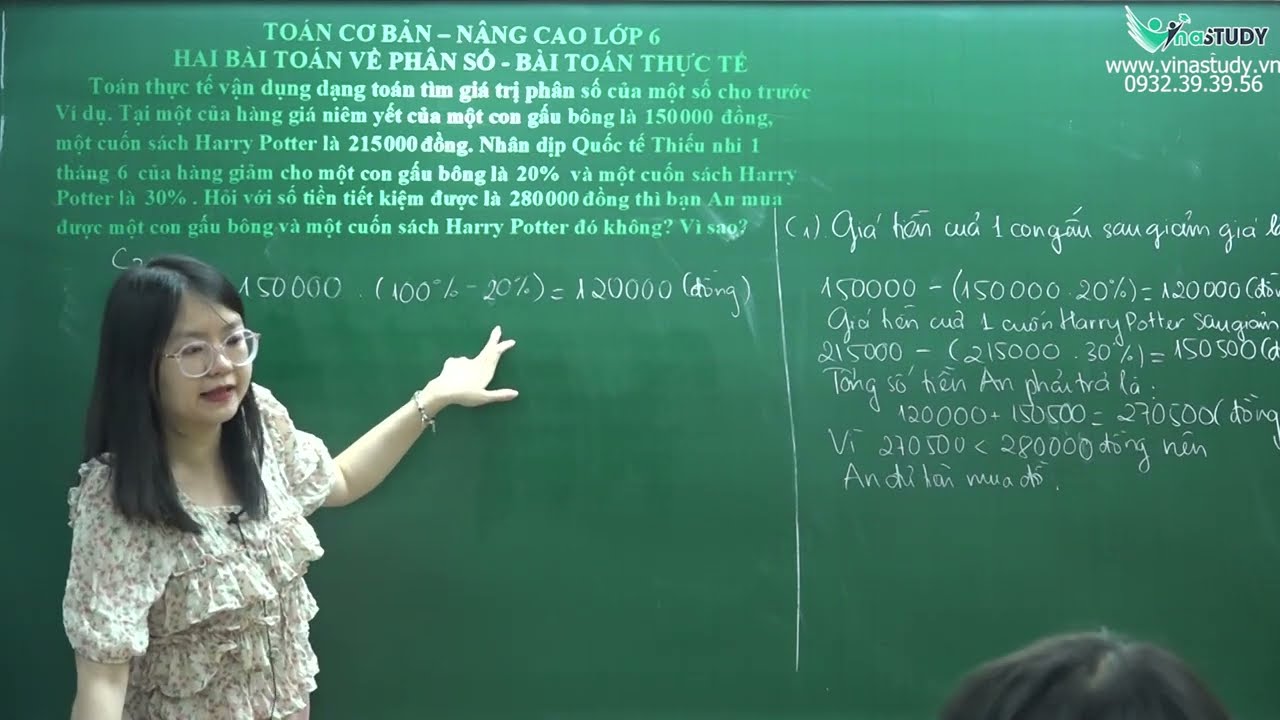 TOÁN CƠ BẢN – NÂNG CAO LỚP 6
HAI BÀI TOÁN VỀ PHÂN SỐ - BÀI TOÁN THỰC TẾ
Toán thực tế vận dụng dạng toán tìm giá trị phân số của một số cho trước
Ví dụ. Tại một của hàng giá niêm yết của một con gấu bông là 150000 đồng,
một cuốn sách Harry Potter là 215000 đồng. Nhân dịp Quốc tế Thiếu nhi 1
tháng 6 của hàng giảm cho một con gấu bông là 20% và một cuốn sách Harry
Potter là 30% . Hỏi với số tiền tiết kiệm được là 280000 đồng thì bạn An mua
được một con gấu bông và một cuốn sách Harry Potter đó không? Vì sao?
150000 . (100% - 20%) = 120000 (đồng)
C1). Giá tiền của 1 con gấu sau giảm giá
150000 - (150000 . 20%) = 120000
Giá tiền của 1 cuốn Harry Potter sau giảm
215000 - (215000 . 30%) = 150500
Tổng số tiền An phải trả là :
120000 + 150500 = 270500 (đồng
Vì 270500 < 280000 đồng nên
An đủ tiền mua đồ.
VinaSTUDY
www.vinastudy.vn
0932.39.39.56